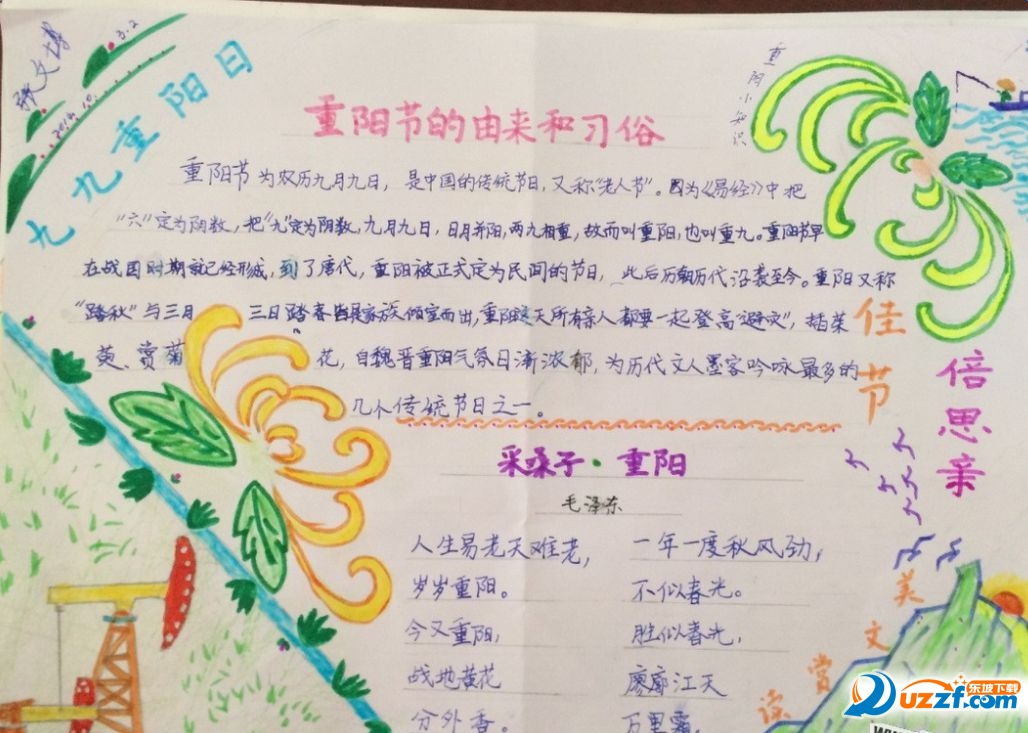 张文博
3.2
九九重阳日
重阳节的由来和习俗
重阳小知识
重阳节为农历九月九日，是中国的传统节日，又称“老人节”。因为《易经》中把
“六”定为阴数，把“九”定为阳数，九月九日，日月并阳，两九相重，故而叫重阳，也叫重九。重阳节早
在战国时期就已经形成，到了唐代，重阳被正式定为民间的节日，此后历朝历代沿袭至今。重阳又称
“踏秋”与三月三日踏春皆是家族倾室而出，重阳这天所有亲人都要一起登高“避灾”，插茱
萸、赏菊花，自魏晋重阳气氛日渐浓郁，为历代文人墨客吟咏最多的
几个传统节日之一。
佳节
倍思亲
采桑子·重阳
毛泽东
人生易老天难老，
岁岁重阳。
今又重阳，
战地黄花
分外香。
一年一度秋风劲，
不似春光。
胜似春光，
廖廓江天
万里霜。
美文赏读
uzzf.com
东坡下载